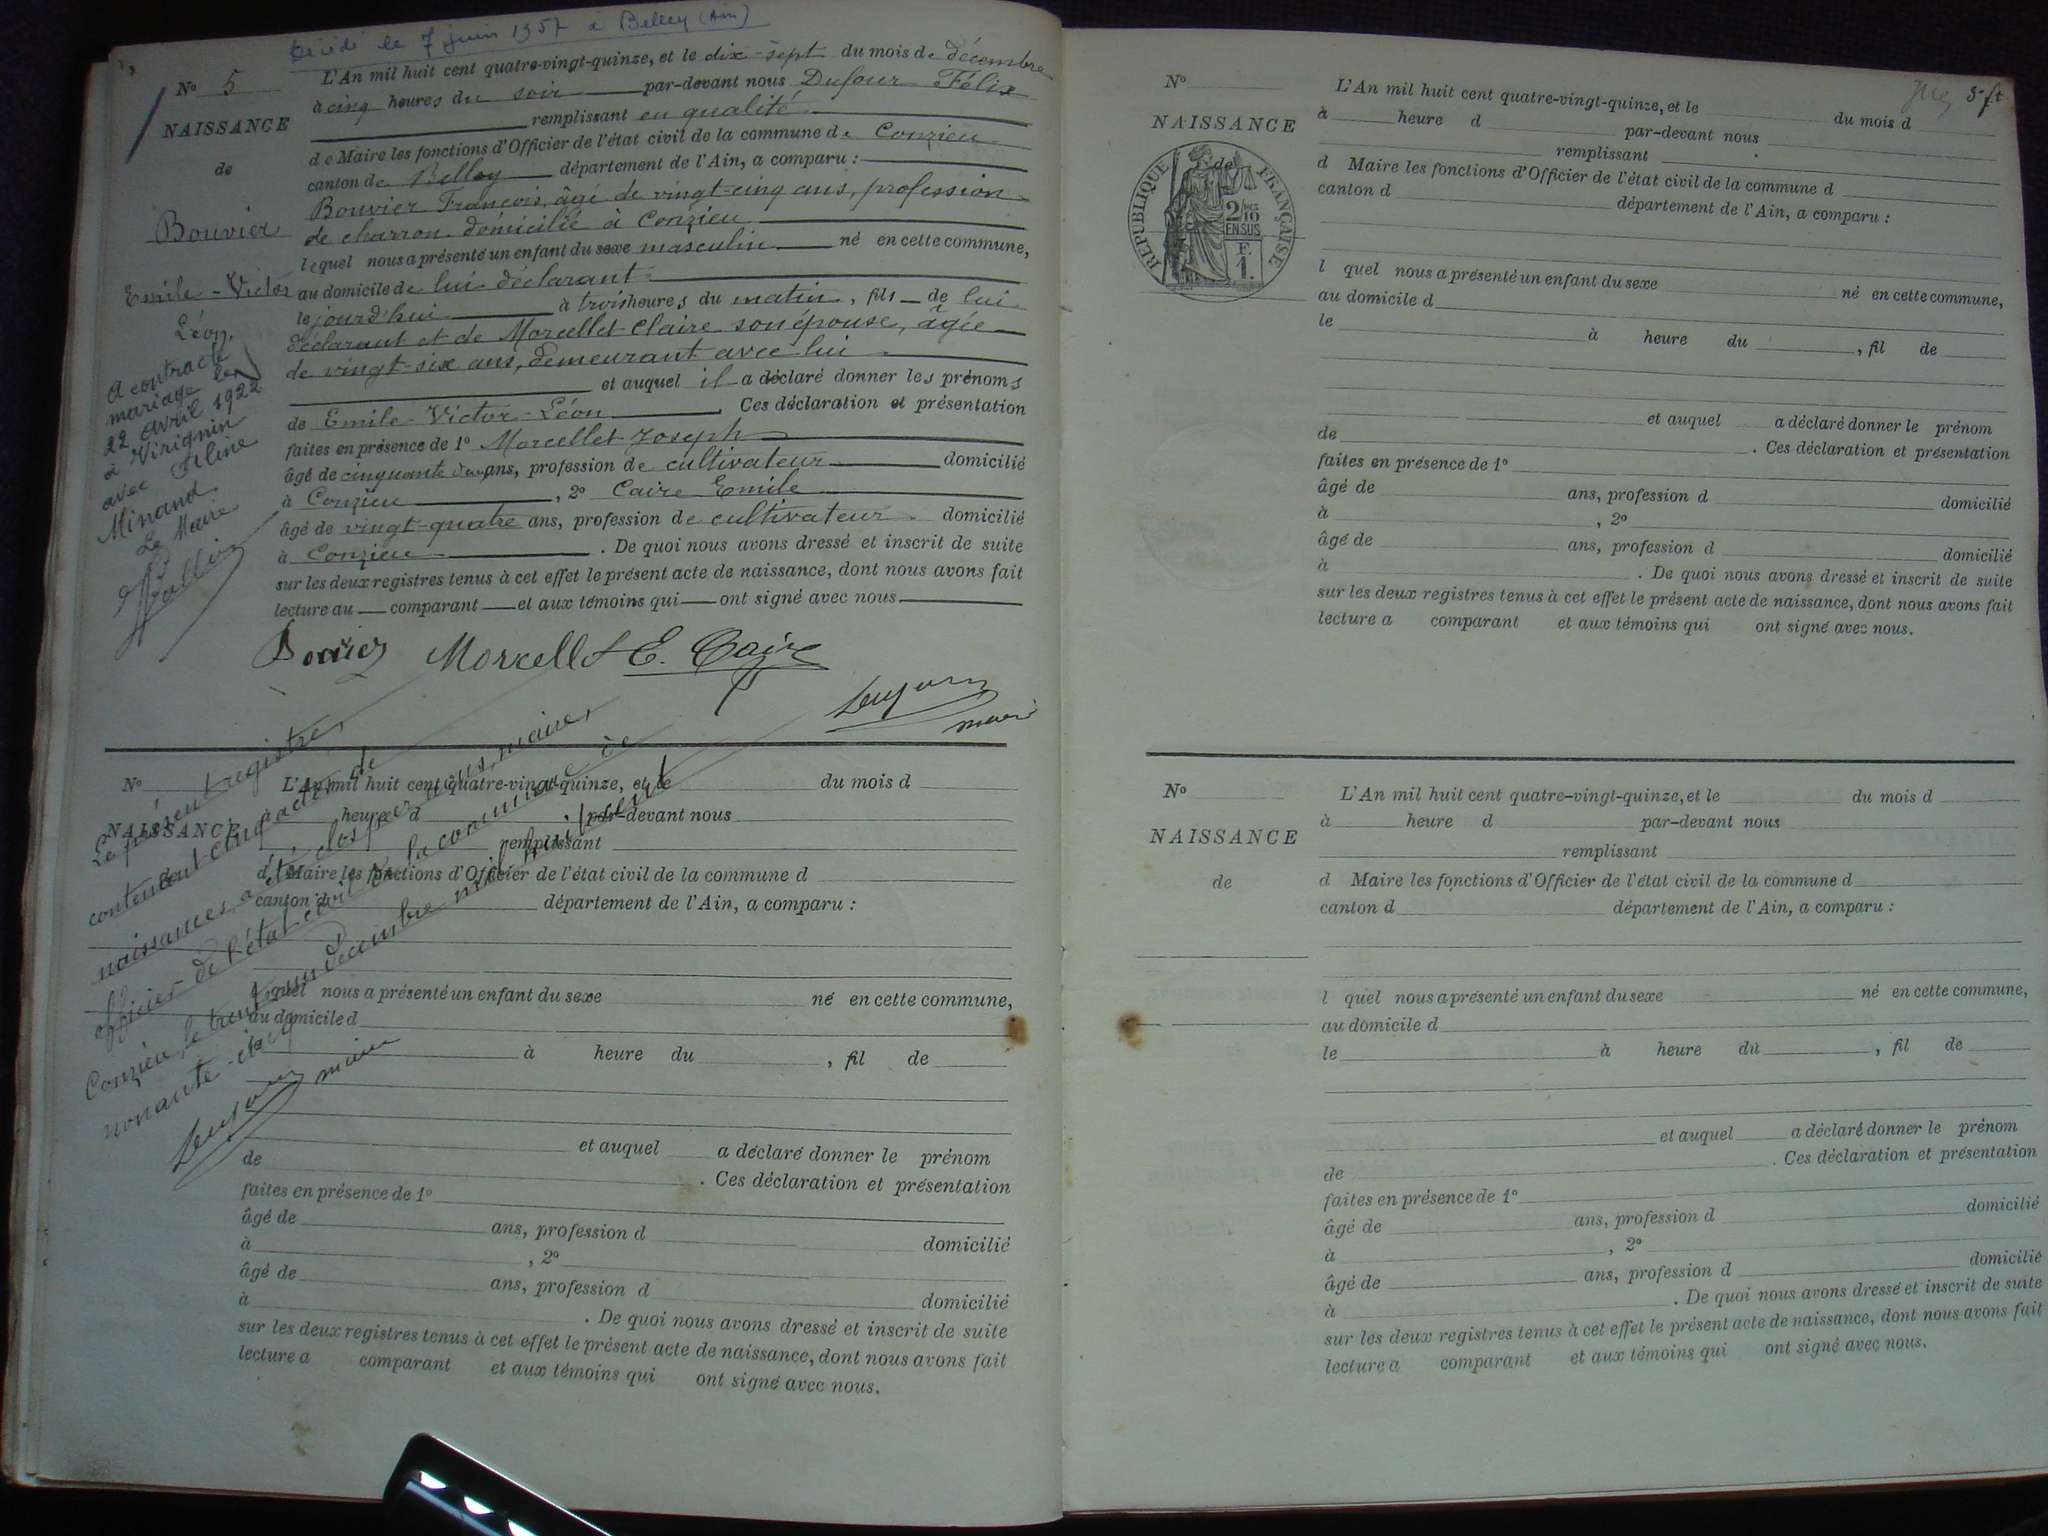 Décédé le 7 juin 1957 à Belley (Ain)
N° 5
NAISSANCE
de
Bouvier
Emile-Victor
Léon.
A contracté
mariage le
22 avril 1922
à Virignin
avec Aline
Minand
Le Maire
L'An mil huit cent quatre-vingt-quinze, et le dix-sept du mois de décembre
à cinq heures du soir par-devant nous Dufour Félix
remplissant en qualité
de Maire les fonctions d'Officier de l'état civil de la commune de Conzieu
canton de Belley département de l'Ain, a comparu :
Bouvier François, âgé de vingt-cinq ans, profession
de charron domicilié à Conzieu
lequel nous a présenté un enfant du sexe masculin né en cette commune,
au domicile de lui déclarant
le jourd'hui à trois heures du matin, fils de lui
déclarant et de Morcellet Claire son épouse, âgée
de vingt-six ans, demeurant avec lui
et auquel il a déclaré donner les prénoms
de Emile-Victor-Léon. Ces déclaration et présentation
faites en présence de 1° Morcellet Joseph
âgé de cinquante ans, profession de cultivateur domicilié
à Conzieu, 2° Caire Emile
âgé de vingt-quatre ans, profession de cultivateur domicilié
à Conzieu. De quoi nous avons dressé et inscrit de suite
sur les deux registres tenus à cet effet le présent acte de naissance, dont nous avons fait
lecture au comparant et aux témoins qui ont signé avec nous
Bouvier Morcellet E. Caire
Dufour
maire
N°
NAISSANCE
de
L'An mil huit cent quatre-vingt-quinze, et le du mois d
à heure d par-devant nous
remplissant
d Maire les fonctions d'Officier de l'état civil de la commune d
canton d département de l'Ain, a comparu :
l quel nous a présenté un enfant du sexe né en cette commune,
au domicile d
le à heure du , fil de
et auquel a déclaré donner le prénom
de . Ces déclaration et présentation
faites en présence de 1°
âgé de ans, profession d domicilié
à , 2°
âgé de ans, profession d domicilié
à . De quoi nous avons dressé et inscrit de suite
sur les deux registres tenus à cet effet le présent acte de naissance, dont nous avons fait
lecture a comparant et aux témoins qui ont signé avec nous.
Le présent registre,
contenant cinq actes de
naissances, a été clos par nous, maire,
officier de l'état civil de la commune de
Conzieu, le trente un décembre mil huit cent
nonante-cinq
Dufour maire
N°
NAISSANCE
de
RÉPUBLIQUE FRANÇAISE
2/10
EN SUS
F
1.
L'An mil huit cent quatre-vingt-quinze, et le du mois d
à heure d par-devant nous
remplissant
d Maire les fonctions d'Officier de l'état civil de la commune d
canton d département de l'Ain, a comparu :
l quel nous a présenté un enfant du sexe né en cette commune,
au domicile d
le à heure du , fil de
et auquel a déclaré donner le prénom
de . Ces déclaration et présentation
faites en présence de 1°
âgé de ans, profession d domicilié
à , 2°
âgé de ans, profession d domicilié
à . De quoi nous avons dressé et inscrit de suite
sur les deux registres tenus à cet effet le présent acte de naissance, dont nous avons fait
lecture a comparant et aux témoins qui ont signé avec nous.
N°
NAISSANCE
de
L'An mil huit cent quatre-vingt-quinze, et le du mois d
à heure d par-devant nous
remplissant
d Maire les fonctions d'Officier de l'état civil de la commune d
canton d département de l'Ain, a comparu :
l quel nous a présenté un enfant du sexe né en cette commune,
au domicile d
le à heure du , fil de
et auquel a déclaré donner le prénom
de . Ces déclaration et présentation
faites en présence de 1°
âgé de ans, profession d domicilié
à , 2°
âgé de ans, profession d domicilié
à . De quoi nous avons dressé et inscrit de suite
sur les deux registres tenus à cet effet le présent acte de naissance, dont nous avons fait
lecture a comparant et aux témoins qui ont signé avec nous.